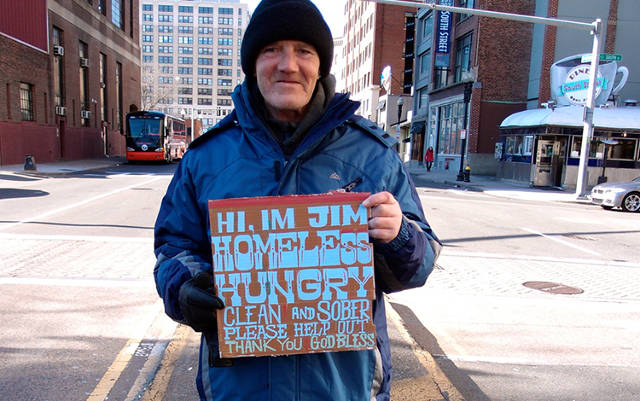 SOUTH STREET
HI, IM JIM
HOMELESS
HUNGRY
CLEAN AND SOBER
PLEASE HELP OUT
THANK YOU GOD BLESS